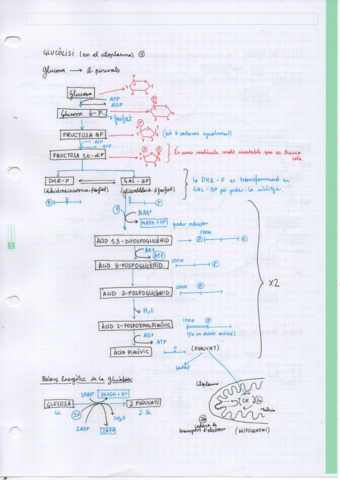 GLUCÒLISI (en el citoplasma) ①
Glucosa → 2 piruvats
Glucosa
ATP
ADP
Glucosa 6-P
fosfat
FRUCTOSA 6P
(són 6 carbonis igualment)
ATP
ADP
FRUCTOSA 1,6-dP
És una molècula molt inestable que es trenca sola
DHA-P
GAL-3P
(dihidroxiacetona-fosfat)
(gliceraldehid-3fosfat)
La DHA-P es transformarà en
GAL-3P per poder-la utilitzar.
P
NAD⁺
NADH+H⁺
poder reductor
COOH
ÀCID 1,3-DIFOSFOGLICÈRID
P
P
ADP
ATP
COOH
ÀCID 3-FOSFOGLICÈRID
P
X2
COOH
ÀCID 2-FOSFOGLICÈRID
P
H₂O
COOH P
ÀCID 2-FOSFOENOLPIRÚVIC
ADP
ATP
ÀCID PIRÚVIC
(PIRUVAT)
Lactat
Balanç Energètic de la glucòlisi:
Citoplasma
2NAD⁺
2NADH + H⁺
GLUCOSA
2 PIRUVATS
6C
2P
2·3C
2H₂O
2ADP
2ATP
CK
Matriu
cadena de
transport d'electrons
(MITOCONDRI)